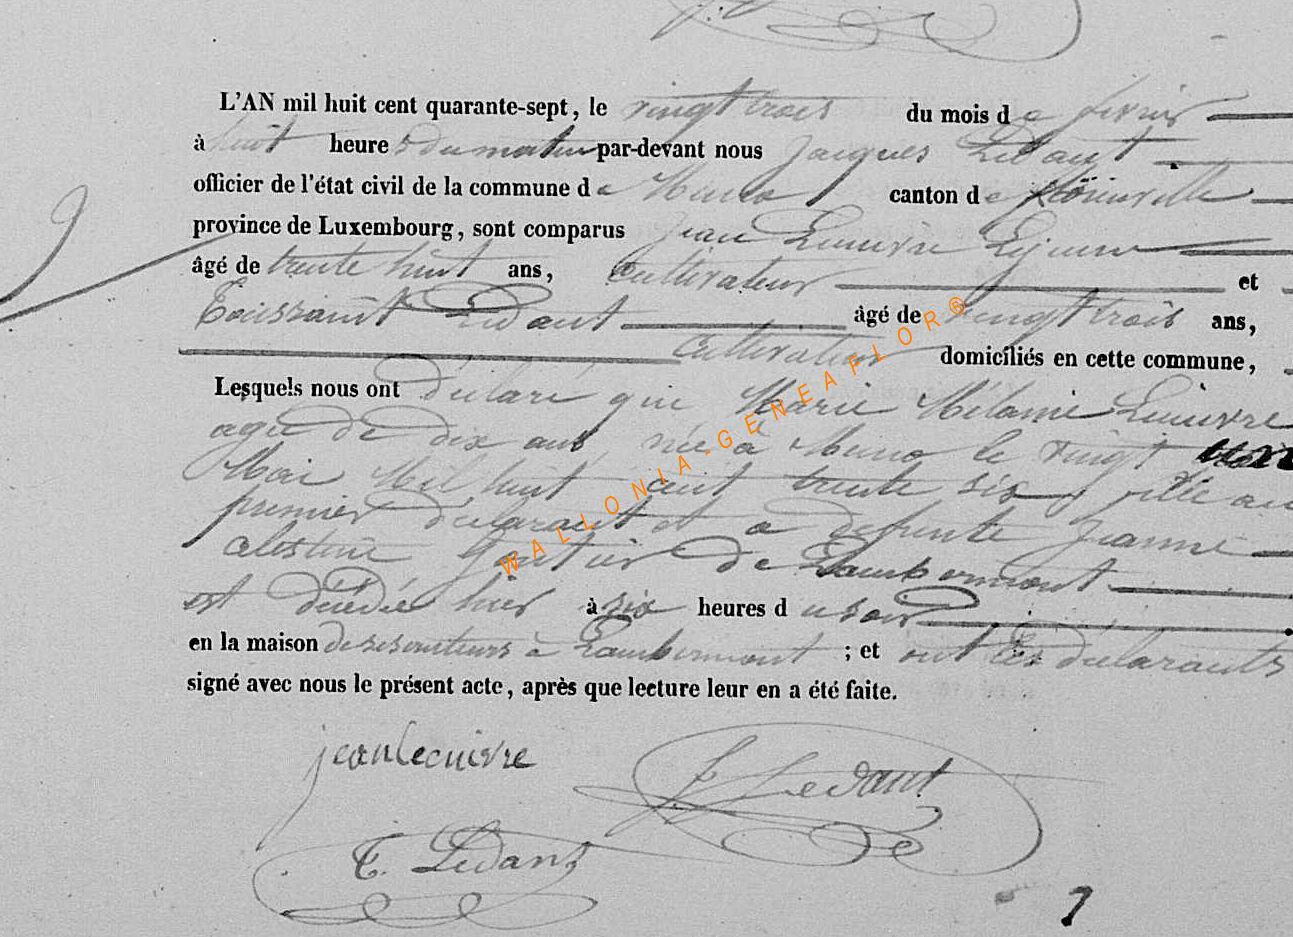 L'AN mil huit cent quarante-sept, le vingt trois du mois de fevrier
à huit heures du matin par-devant nous Jacques Ledant
officier de l'état civil de la commune de Muno canton de florenville
province de Luxembourg, sont comparus Jean Lecuivre Lejeune
âgé de trente huit ans, Cultivateur et
Toussaint Ledant âgé de vingt trois ans,
Cultivateur domiciliés en cette commune,
Lesquels nous ont déclaré que Marie Mélanie Lecuivre
agée de dix ans née à Muno le vingt
Mai Mil huit cent trente six, fille au
premier déclarant et a defunte Jeanne
celestine de Lambermont
est décédée hier à six heures du soir
en la maison de ses à Lambermont ; et ont les déclarants
signé avec nous le présent acte, après que lecture leur en a été faite.
jean lecuivre
J Ledant
T. Ledant
7
WALLONIA-GENEAFLOR®